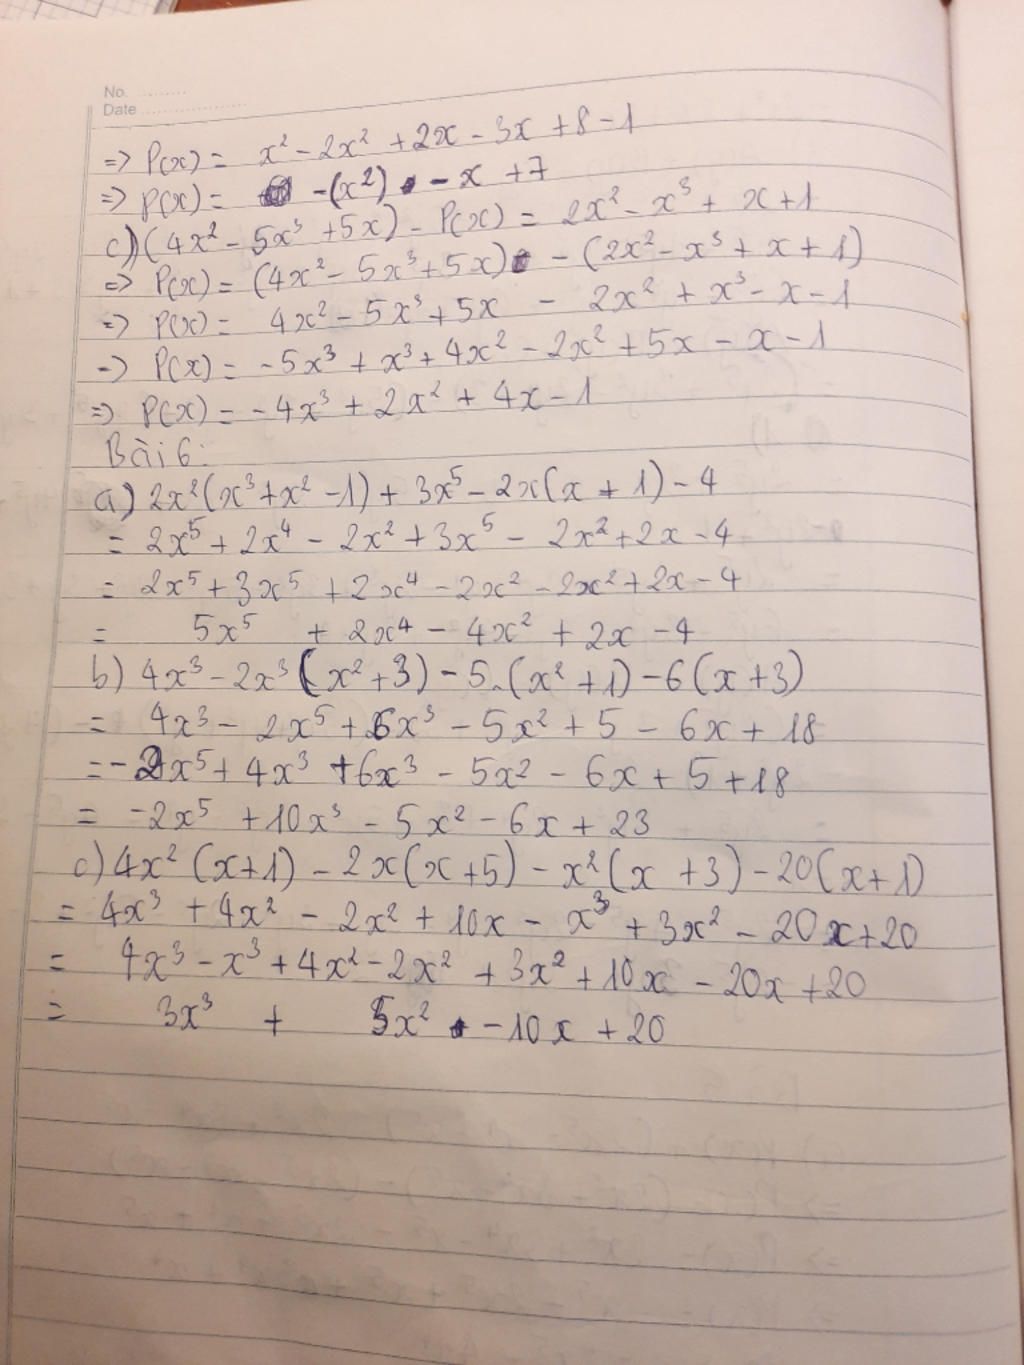 No. ..........
Date ......................
=> P(x) = x² - 2x² + 2x - 3x + 8 - 1
=> P(x) = -(x²) - x + 7
c) (4x² - 5x³ + 5x) - P(x) = 2x² - x³ + x + 1
=> P(x) = (4x² - 5x³ + 5x) - (2x² - x³ + x + 1)
=> P(x) = 4x² - 5x³ + 5x - 2x² + x³ - x - 1
=> P(x) = -5x³ + x³ + 4x² - 2x² + 5x - x - 1
=> P(x) = -4x³ + 2x² + 4x - 1
Bài 6:
a) 2x²(x³ + x² - 1) + 3x⁵ - 2x(x + 1) - 4
= 2x⁵ + 2x⁴ - 2x² + 3x⁵ - 2x² + 2x - 4
= 2x⁵ + 3x⁵ + 2x⁴ - 2x² - 2x² + 2x - 4
= 5x⁵ + 2x⁴ - 4x² + 2x - 4
b) 4x³ - 2x³ (x² + 3) - 5.(x² + 1) - 6(x + 3)
= 4x³ - 2x⁵ + 6x³ - 5x² + 5 - 6x + 18
= -2x⁵ + 4x³ + 6x³ - 5x² - 6x + 5 + 18
= -2x⁵ + 10x³ - 5x² - 6x + 23
c) 4x² (x + 1) - 2x(x + 5) - x²(x + 3) - 20(x + 1)
= 4x³ + 4x² - 2x² + 10x - x³ + 3x² - 20x + 20
= 4x³ - x³ + 4x² - 2x² + 3x² + 10x - 20x + 20
= 3x³ + 5x² - 10x + 20